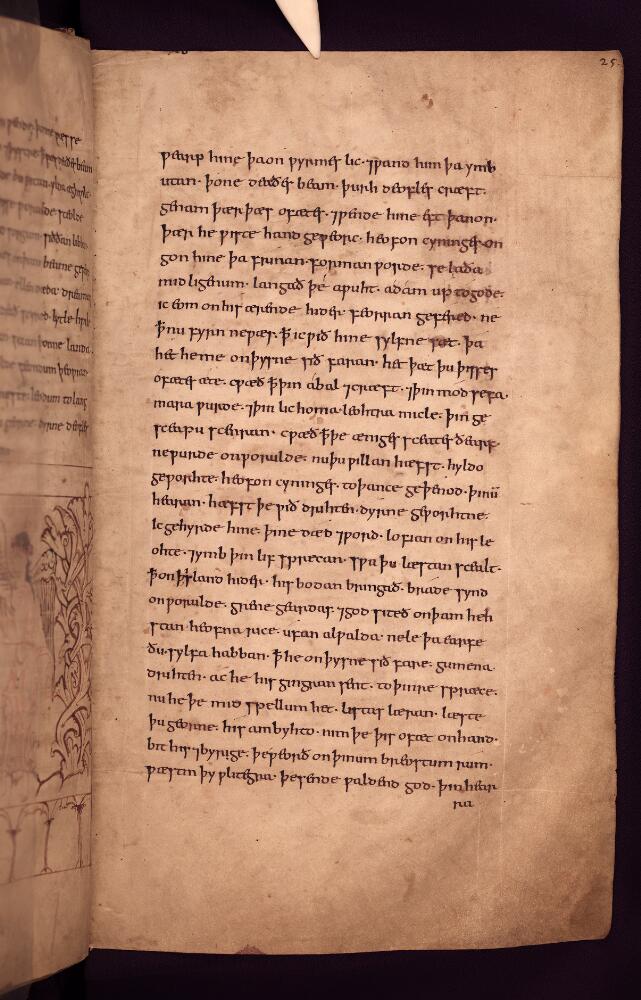 25.
ƿearp hine þa on ƿyrmes lic · ⁊ ƿand him þa ymb
utan · þone deaðes beam · þurh deofles cræft ·
genam þær þæs ofætes · ⁊ ƿende hine eft þanon ·
þær he ƿiste hand geƿeorc · heofon cyninges · on
gon hine þa frinan · forman ƿorde · se laða
mid ligenum · langað þé aƿuht · adám up to gode ·
ic eom on his ærende hider · feorran gefered · ne
ꝥ nu fyrn ne ƿæs · ꝥ ic ƿið hine sylfne sæt · þa
het he me on þysne sið faran · het þæt þu þisses
ofætes æte · cƿæð ꝥ þin abal ⁊ cræft · ⁊ þin mód sefa ·
mara ƿurde · ⁊ þin lic homa · leohtra micle · þin ge
sceapu scenran · cƿæð ꝥ þe æniges sceates ðearf
ne ƿurde on ƿorulde · nu þu ƿillan hæfst · hyldo
geƿorhte · heofon cyninges · to þance geþenod · þinū
hearan · hæfst þe ƿið drihten · dyrne geƿorhtne ·
Ic gehyrde hine · þine dæd ⁊ ƿord · lofian on his le
ohte · ⁊ ymb þin lif sprecan · sƿa þu læstan scealt ·
ꝥ on þis land hider · his bodan bringað · brade synd
on ƿorulde · grene geardas · ⁊ god siteð on þam heh
stan · heofna rice · ufan alƿalda · nele þa earfe
ðu · sylfa habban · ꝥ he on þysne sið fare · gumena
drihten · ac he his gingran sent · to þinre spræce ·
nu he þe mid spellum het · listas læran · læste
þu georne · his ambyhto · nim þe þis ofæt on hand ·
bit his ⁊ byrige · þe ƿeorð on þinum breostum rum ·
ƿæstm þy ƿlitegra · þe sende ƿaldend god · þin hear
ra